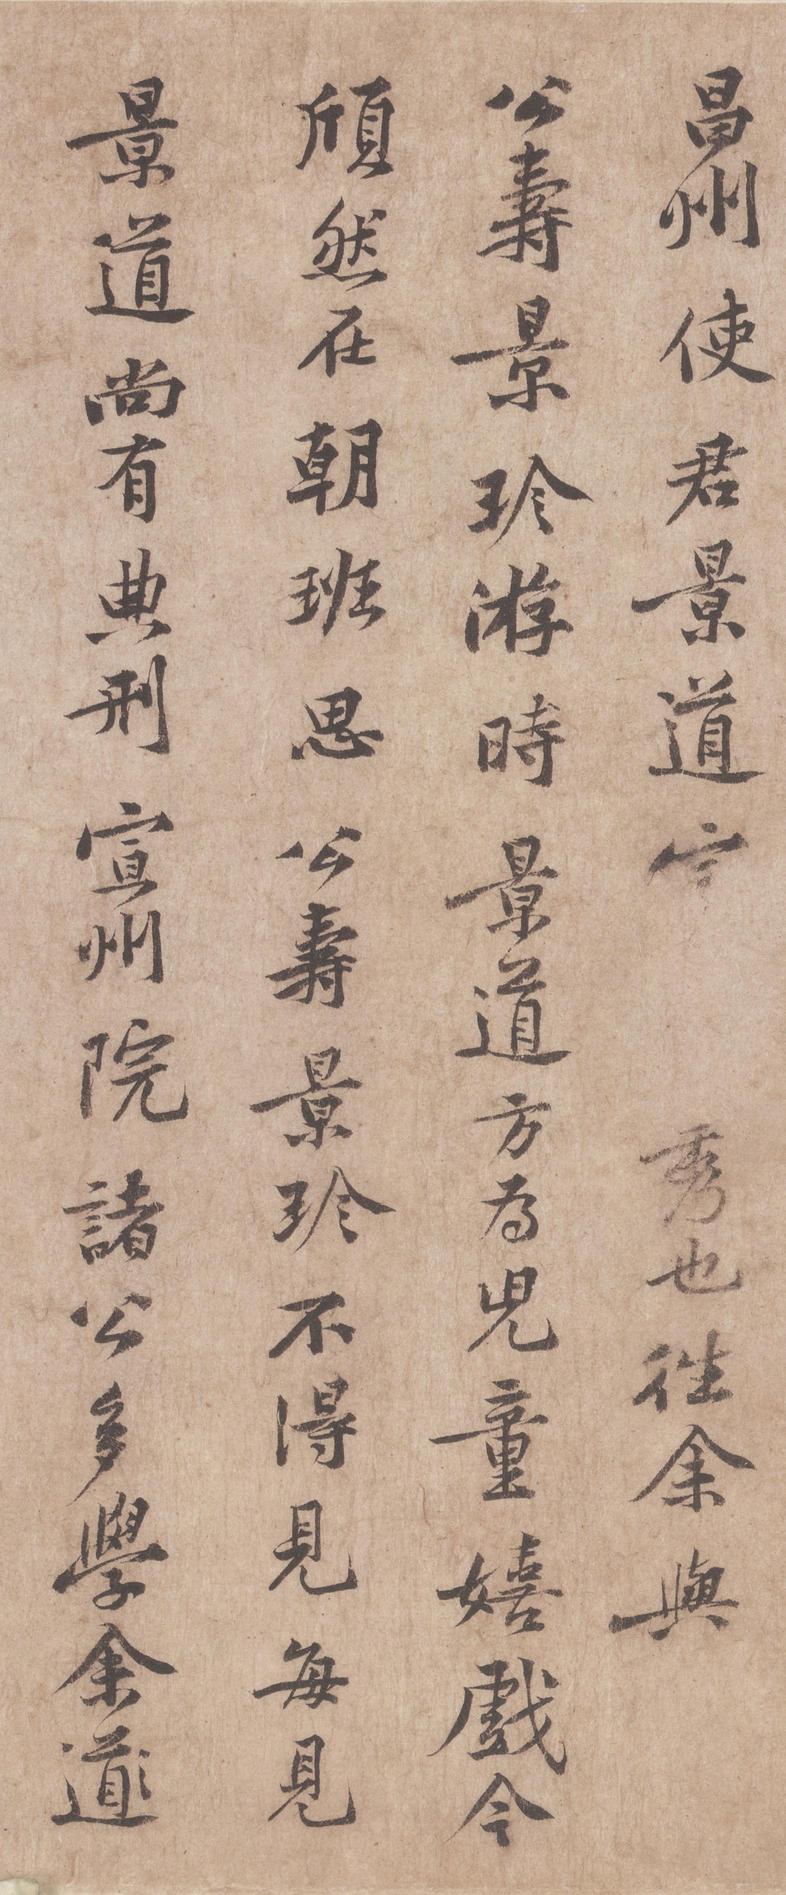 昌州使君景道宗秀也往余與
公壽景珍游時景道方為兒童嬉戲今
頎然在朝班思公壽景珍不得見每見
景道尚有典刑宣州院諸公多學余